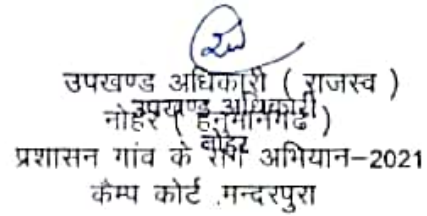 उपखण्ड अधिकारी ( राजस्व )
उपखण्ड अधिकारी
नोहर ( हनुमानगढ )
नोहर
प्रशासन गांव के संग अभियान-2021
कैम्प कोर्ट मन्दरपुरा